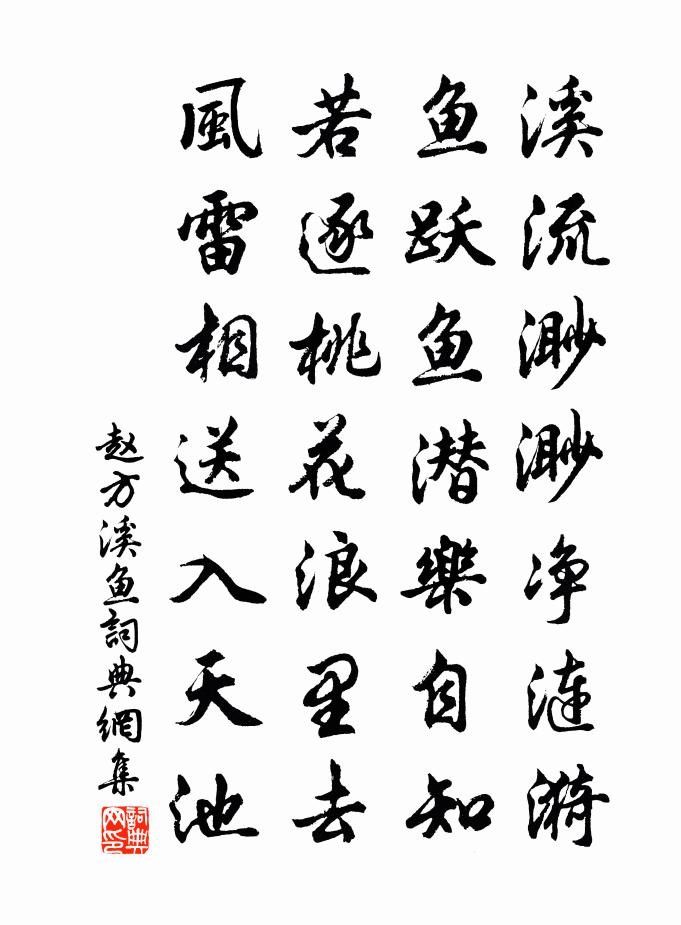 溪流渺渺净涟漪
鱼跃鱼潜樂自知
若逐桃花浪里去
風雷相送入天池
赵方溪鱼詞典網集
詞典
网印